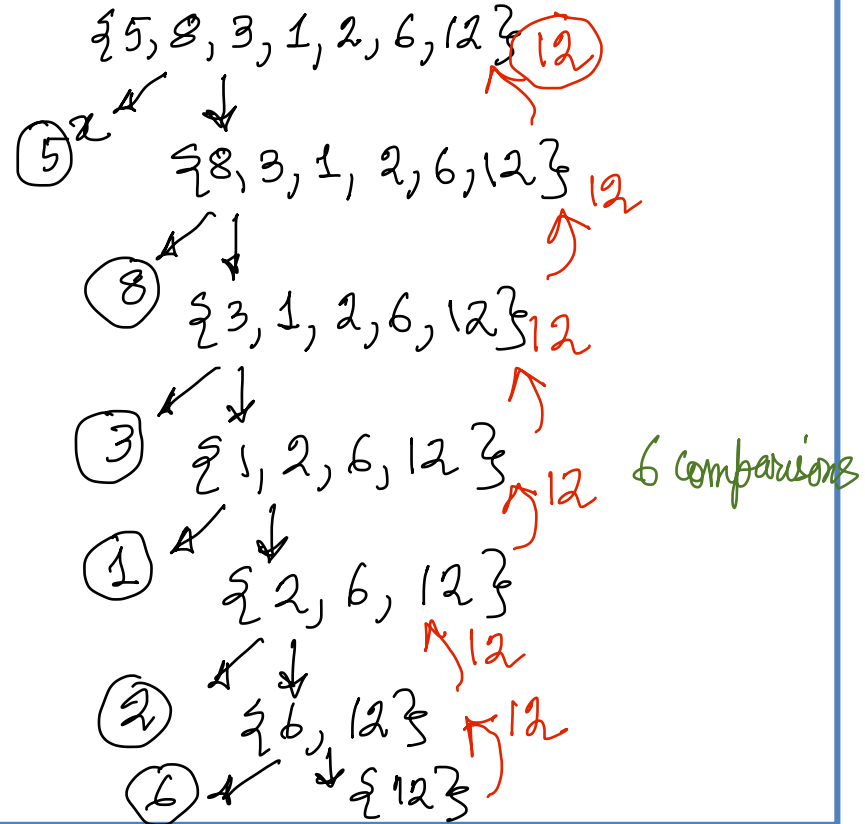 {5, 8, 3, 1, 2, 6, 12} 12
5 x
{8, 3, 1, 2, 6, 12} 12
8
{3, 1, 2, 6, 12} 12
3
{1, 2, 6, 12} 12
6 comparisons
1
{2, 6, 12} 12
2
{6, 12} 12
6
{12}